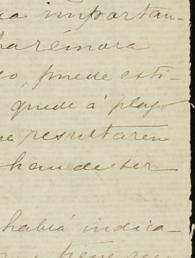 importan-
rémora
puede esti-
quede á plazo
resultaren
han de ser
había indica-